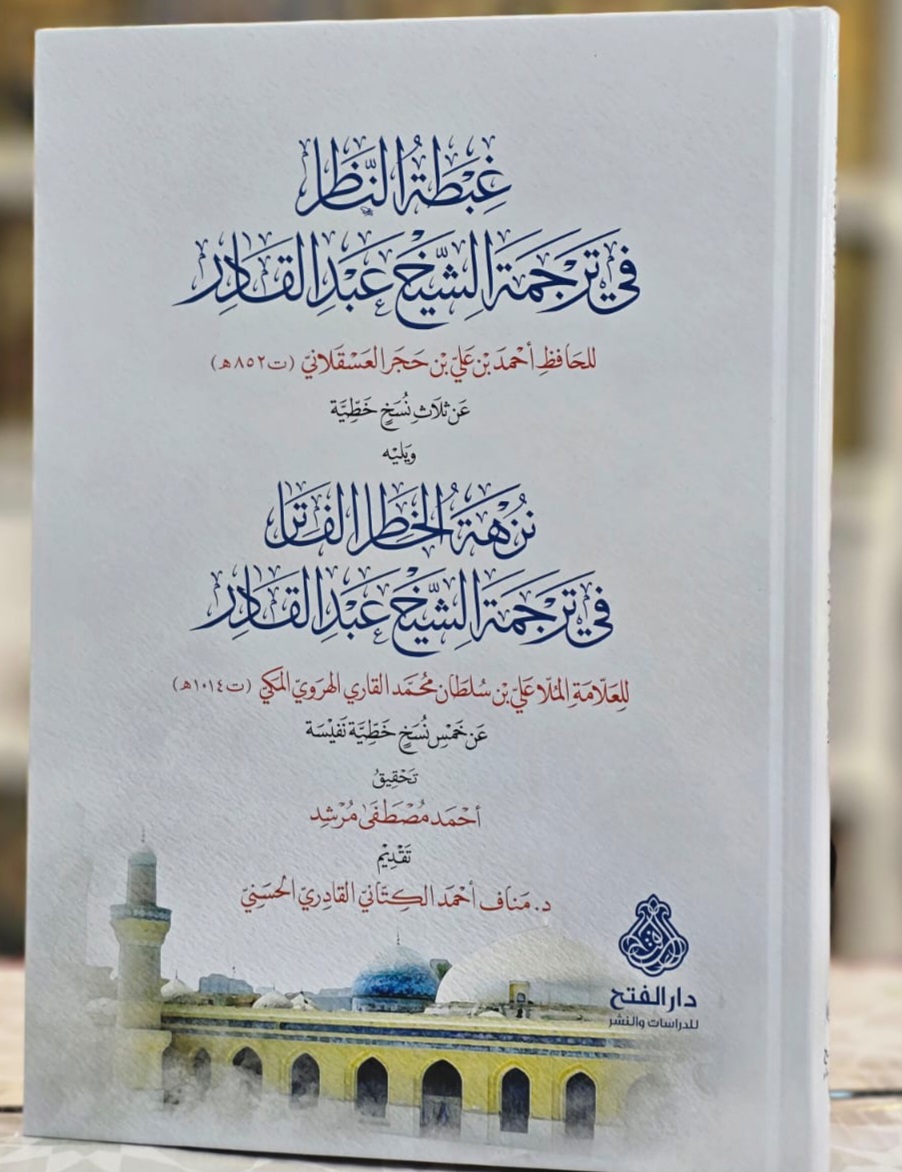 غِبْطَةُ النَّاظِر
فِي تَرْجَمَةِ الشَّيْخِ عَبْدِ القَادِر
للحَافِظِ أحْمَدَ بْن عَلِيّ بْن حَجَر العَسْقَلانيّ (ت ٨٥٢هـ)
عَن ثَلاثِ نُسَخٍ خَطِّيَّة
ويَليْه
نُزْهَةُ الخَاطِر الفَاتِر
فِي تَرْجَمَةِ الشَّيْخِ عَبْدِ القَادِر
للعَلّامَةِ المُلّا عَليّ بْن سُلطَان مُحَمَّد القاري الهرَويّ المَكيّ (ت ١٠١٤هـ)
عَن خَمْسِ نُسَخٍ خَطِّيَّة نَفيْسَة
تَحْقِيقُ
أحْمَد مُصْطَفَى مُرْشِد
تَقْدِيْم
د. مَنَاف أحْمَد الكِتَّانيّ القَادِريّ الحَسَنيّ
دار الفتح
للدراسات والنشر